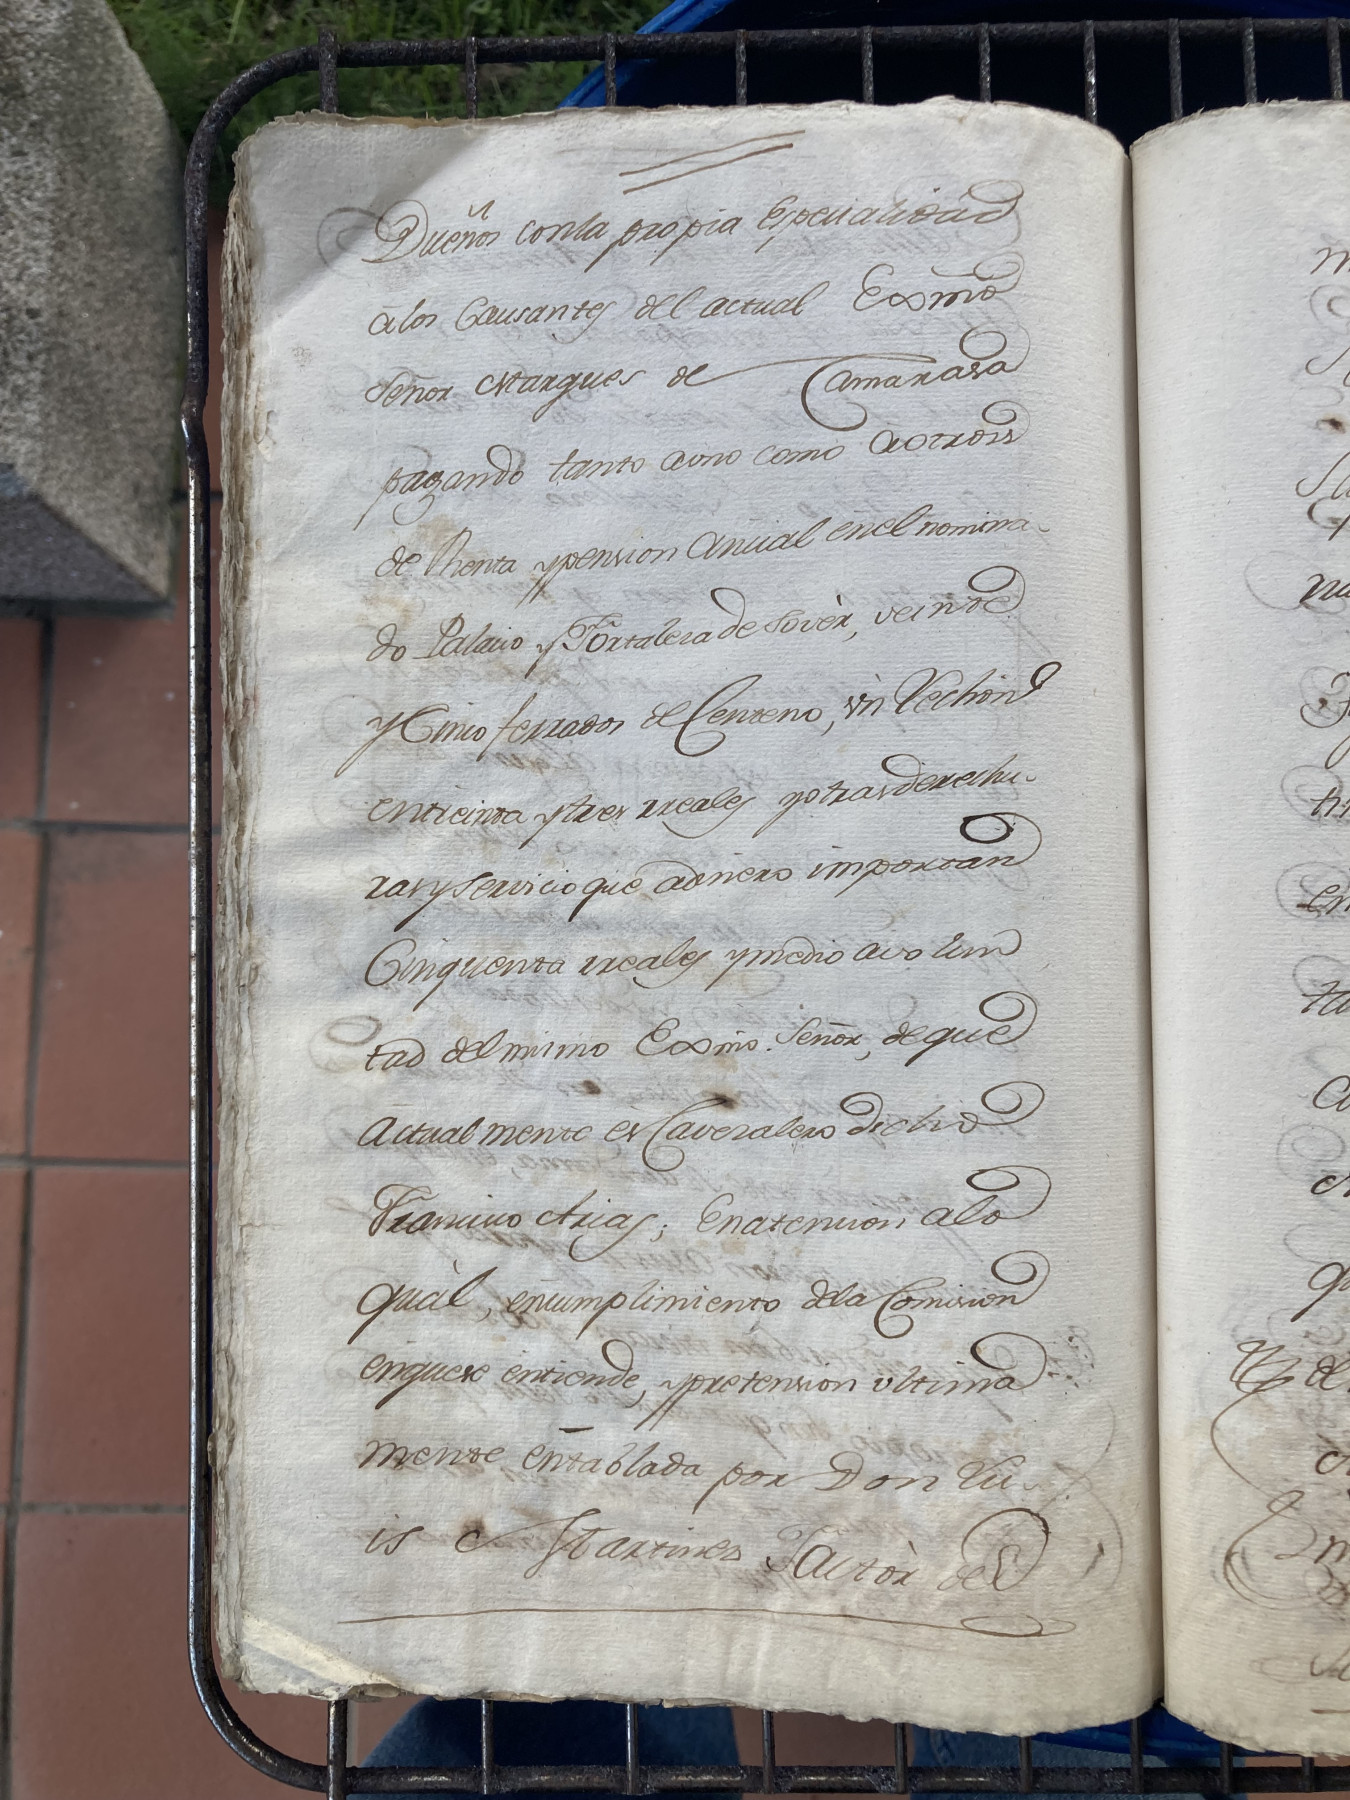 Dueños conla propia Especialidad
àlos Causantes del actual Exmô
Señor Marques de Camarasa
pagando tanto auno como aotros
de Rhenta ypension Anûal enel nomina-
do Palacio y Fortaleza de Sovèr, veinte
y Cinco ferrados de Centeno, ùn Lechon
entreinta ytres rreales yotras derechu-
ras y servicio que adinero importan
Cinquenta rreales ymedio avolun
tad del mismo Exmô. Señor, deque
Actualmente es Caveralero dicho
Francisco Arias; Enatencion alo
quàl, encumplimiento dela Comision
enquese entiende, ypretension ultima
mente entablada por Don Lu-
is Martinez Factòr del